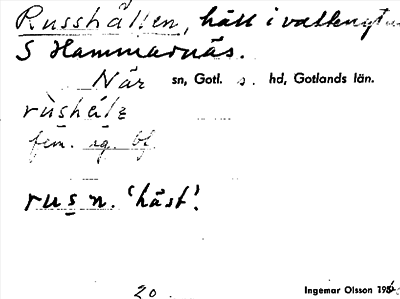 Russhällen, häll i vattnet
S Hammarnäs.
När sn, Gotl. s. hd, Gotlands län.
rùshélę
fem. sg. bf.
rus n. 'häst'.
20
Ingemar Olsson 195